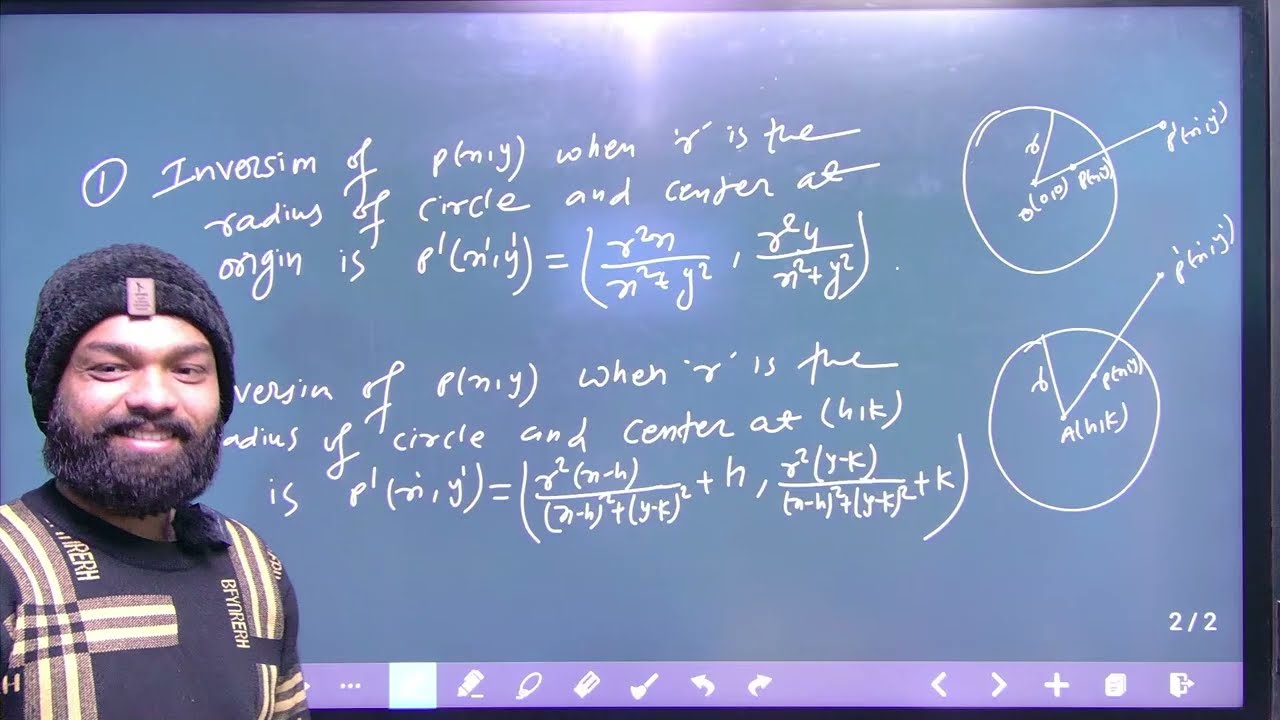 ① Inversion of P(x,y) when 'r' is the
radius of circle and center at
origin is P'(x',y') = (r²x/(x²+y²), r²y/(x²+y²)).
version of P(x,y) when 'r' is the
adius of circle and center at (h,k)
is P'(x',y') = (r²(x-h)/((x-h)²+(y-k)²) + h, r²(y-k)/((x-h)²+(y-k)²) + k)
r
O(0,0)
P(x,y)
P'(x',y')
r
A(h,k)
P(x,y)
P'(x',y')
BFYNRERH
2/2